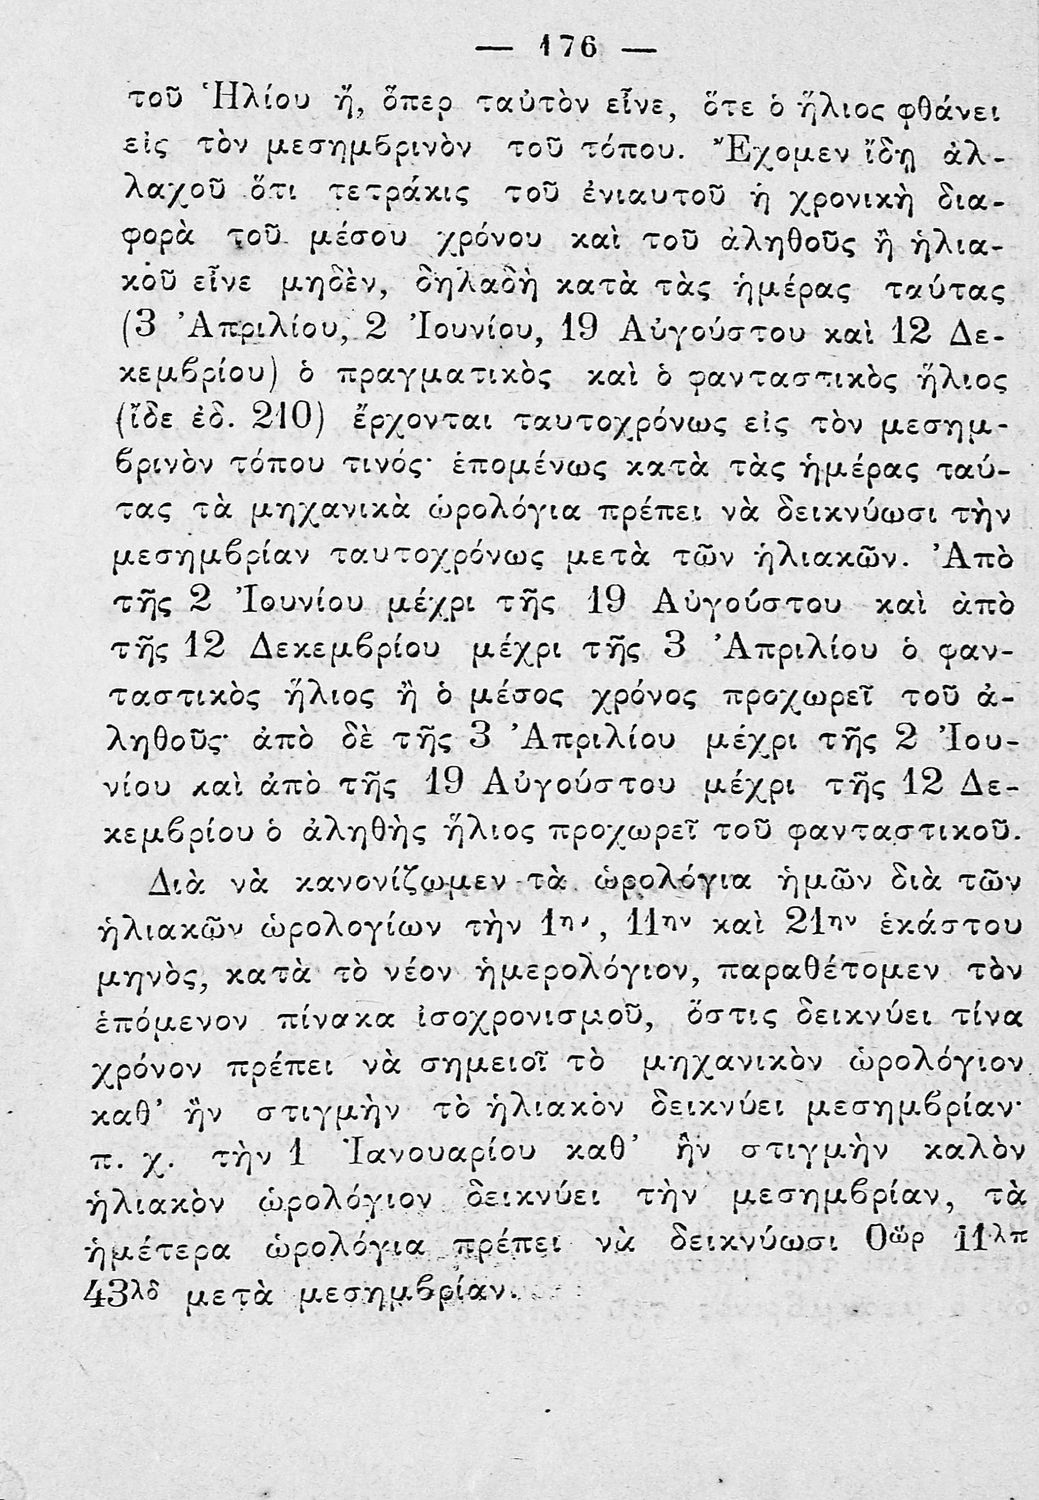 — 176 —
τοῦ Ἡλίου ἤ, ὅπερ ταὐτὸν εἶνε, ὅτε ὁ ἥλιος φθάνει
εἰς τὸν μεσημβρινὸν τοῦ τόπου. Ἔχομεν ἴδῃ ἀλ-
λαχοῦ ὅτι τετράκις τοῦ ἐνιαυτοῦ ἡ χρονικὴ δια-
φορὰ τοῦ μέσου χρόνου καὶ τοῦ ἀληθοῦς ἢ ἡλια-
κοῦ εἶνε μηδὲν, δηλαδὴ κατὰ τὰς ἡμέρας ταύτας
(3 Ἀπριλίου, 2 Ἰουνίου, 19 Αὐγούστου καὶ 12 Δε-
κεμβρίου) ὁ πραγματικὸς καὶ ὁ φανταστικὸς ἥλιος
(ἴδε ἐδ. 210) ἔρχονται ταυτοχρόνως εἰς τὸν μεσημ-
βρινὸν τόπου τινός· ἑπομένως κατὰ τὰς ἡμέρας ταύ-
τας τὰ μηχανικὰ ὡρολόγια πρέπει νὰ δεικνύωσι τὴν
μεσημβρίαν ταυτοχρόνως μετὰ τῶν ἡλιακῶν. Ἀπὸ
τῆς 2 Ἰουνίου μέχρι τῆς 19 Αὐγούστου καὶ ἀπὸ
τῆς 12 Δεκεμβρίου μέχρι τῆς 3 Ἀπριλίου ὁ φαν-
ταστικὸς ἥλιος ἢ ὁ μέσος χρόνος προχωρεῖ τοῦ ἀ-
ληθοῦς· ἀπὸ δὲ τῆς 3 Ἀπριλίου μέχρι τῆς 2 Ἰου-
νίου καὶ ἀπὸ τῆς 19 Αὐγούστου μέχρι τῆς 12 Δε-
κεμβρίου ὁ ἀληθὴς ἥλιος προχωρεῖ τοῦ φανταστικοῦ.
Διὰ νὰ κανονίζωμεν τὰ ὡρολόγια ἡμῶν διὰ τῶν
ἡλιακῶν ὡρολογίων τὴν 1ην, 11ην καὶ 21ην ἑκάστου
μηνὸς, κατὰ τὸ νέον ἡμερολόγιον, παραθέτομεν τὸν
ἑπόμενον πίνακα ἰσοχρονισμοῦ, ὅστις δεικνύει τίνα
χρόνον πρέπει νὰ σημειοῖ τὸ μηχανικὸν ὡρολόγιον
καθ’ ἣν στιγμὴν τὸ ἡλιακὸν δεικνύει μεσημβρίαν·
π. χ. τὴν 1 Ἰανουαρίου καθ’ ἣν στιγμὴν καλὸν
ἡλιακὸν ὡρολόγιον δεικνύει τὴν μεσημβρίαν, τὰ
ἡμέτερα ὡρολόγια πρέπει νὰ δεικνύωσι 0ὥρ 11λπ
43λδ μετὰ μεσημβρίαν.